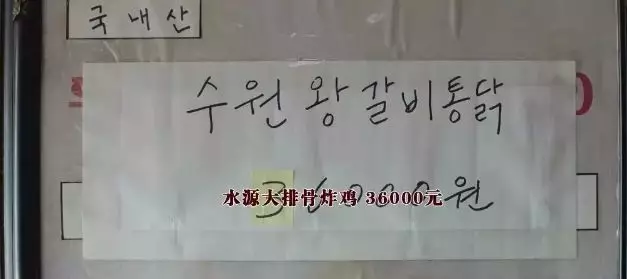 국내산
수원 왕갈비통닭
36000원
水源大排骨炸鸡 36000元